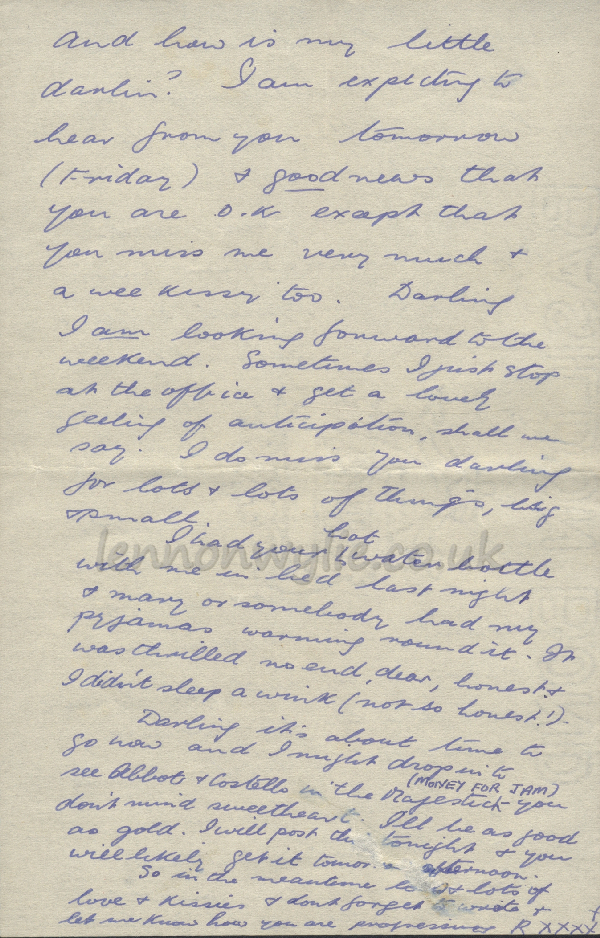 and how is my little
darlin? I am expecting to
hear from you tomorrow
(Friday) & good news that
you are O.K except that
you miss me very much &
a wee kissy too. Darling
I am looking forward to the
weekend. Sometimes I just stop
at the office & get a lovely
feeling of anticipation, shall we
say. I do miss you darling
for lots & lots of things, big
& small.
I had your hot water bottle
with me in bed last night
& mary or somebody had my
pyjamas warming round it. It
was thrilled no end, dear, honest &
I didn't sleep a wink (not so honest!).
Darling it's about time to
go now and I might drop in to
(MONEY FOR JAM)
see Abbot & Costello in the Majestick you
don't mind sweetheart. I'll be as good
as gold. I will post this tonight & you
will likely get it afternoon.
So in the meantime & lots of
love & kissies & dont forget to write &
let me know how you are progressing R xxxx
lennonwylie.co.uk